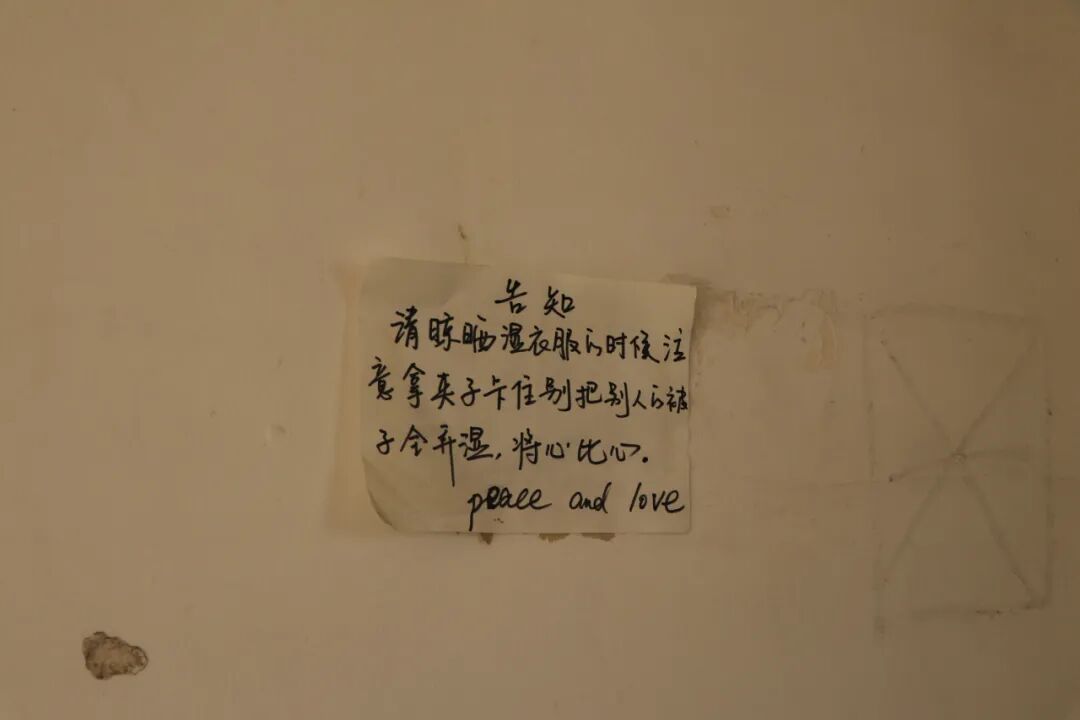 告知
请晾晒湿衣服的时候注
意拿夹子卡住别把别人的被
子全弄湿，将心比心.
peace and love